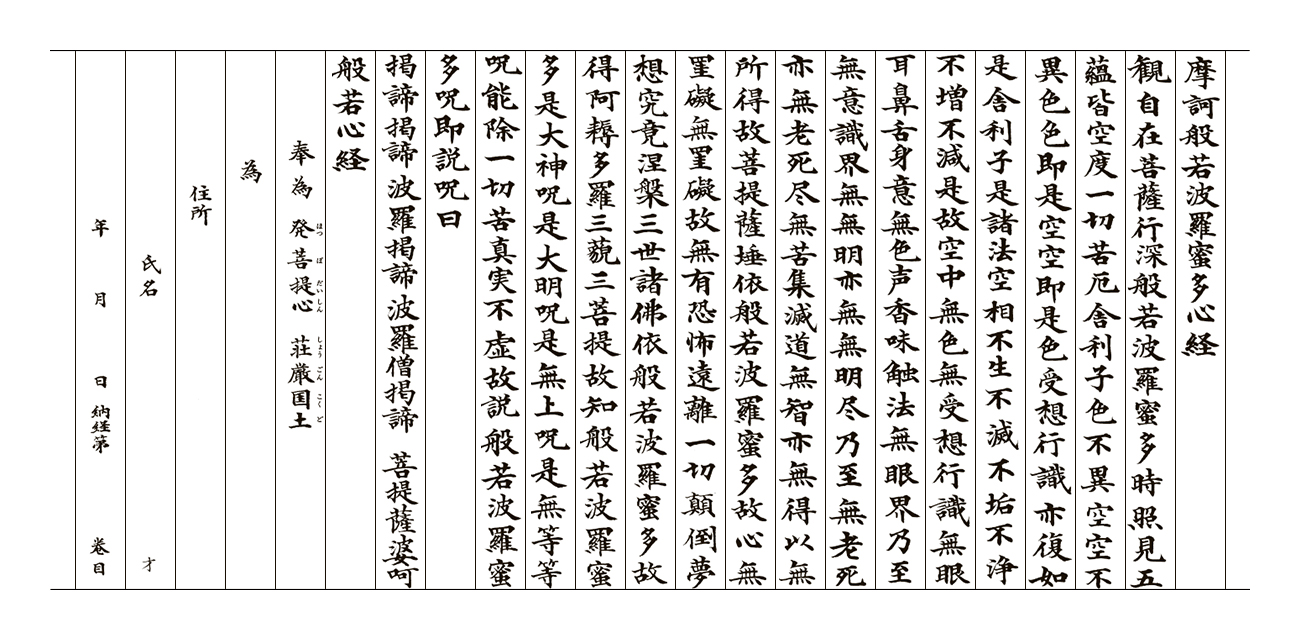 摩訶般若波羅蜜多心経
観自在菩薩行深般若波羅蜜多時照見五
蘊皆空度一切苦厄舎利子色不異空空不
異色色即是空空即是色受想行識亦復如
是舎利子是諸法空相不生不滅不垢不浄
不増不減是故空中無色無受想行識無眼
耳鼻舌身意無色声香味触法無眼界乃至
無意識界無無明亦無無明尽乃至無老死
亦無老死尽無苦集滅道無智亦無得以無
所得故菩提薩埵依般若波羅蜜多故心無
罣礙無罣礙故無有恐怖遠離一切顛倒夢
想究竟涅槃三世諸佛依般若波羅蜜多故
得阿耨多羅三藐三菩提故知般若波羅蜜
多是大神呪是大明呪是無上呪是無等等
呪能除一切苦真実不虚故説般若波羅蜜
多呪即説呪曰
掲諦掲諦波羅掲諦波羅僧掲諦 菩提薩婆呵
般若心経
奉為 発菩提心 荘厳国土
はつ ぼ だい しん しょう ごん こく ど
為
住所
氏名 才
年 月 日 納経第 巻目